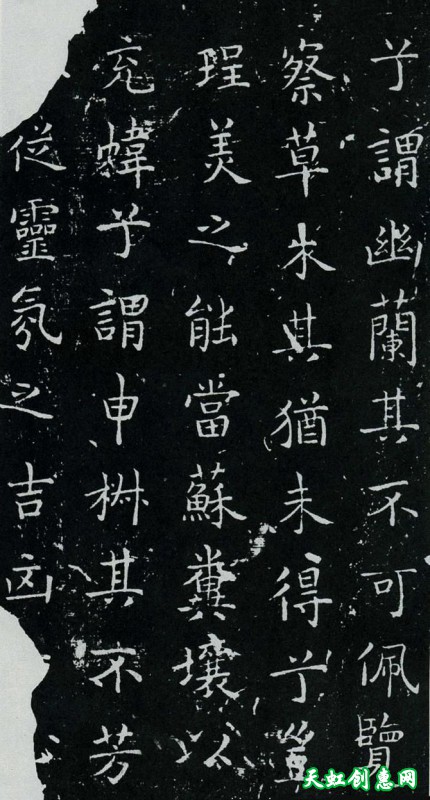 兮謂幽蘭其不可佩覽
察草木其猶未得兮豈
珵美之能當蘇糞壤以
充幃兮謂申椒其不芳
從靈氛之吉占
天虹创意网